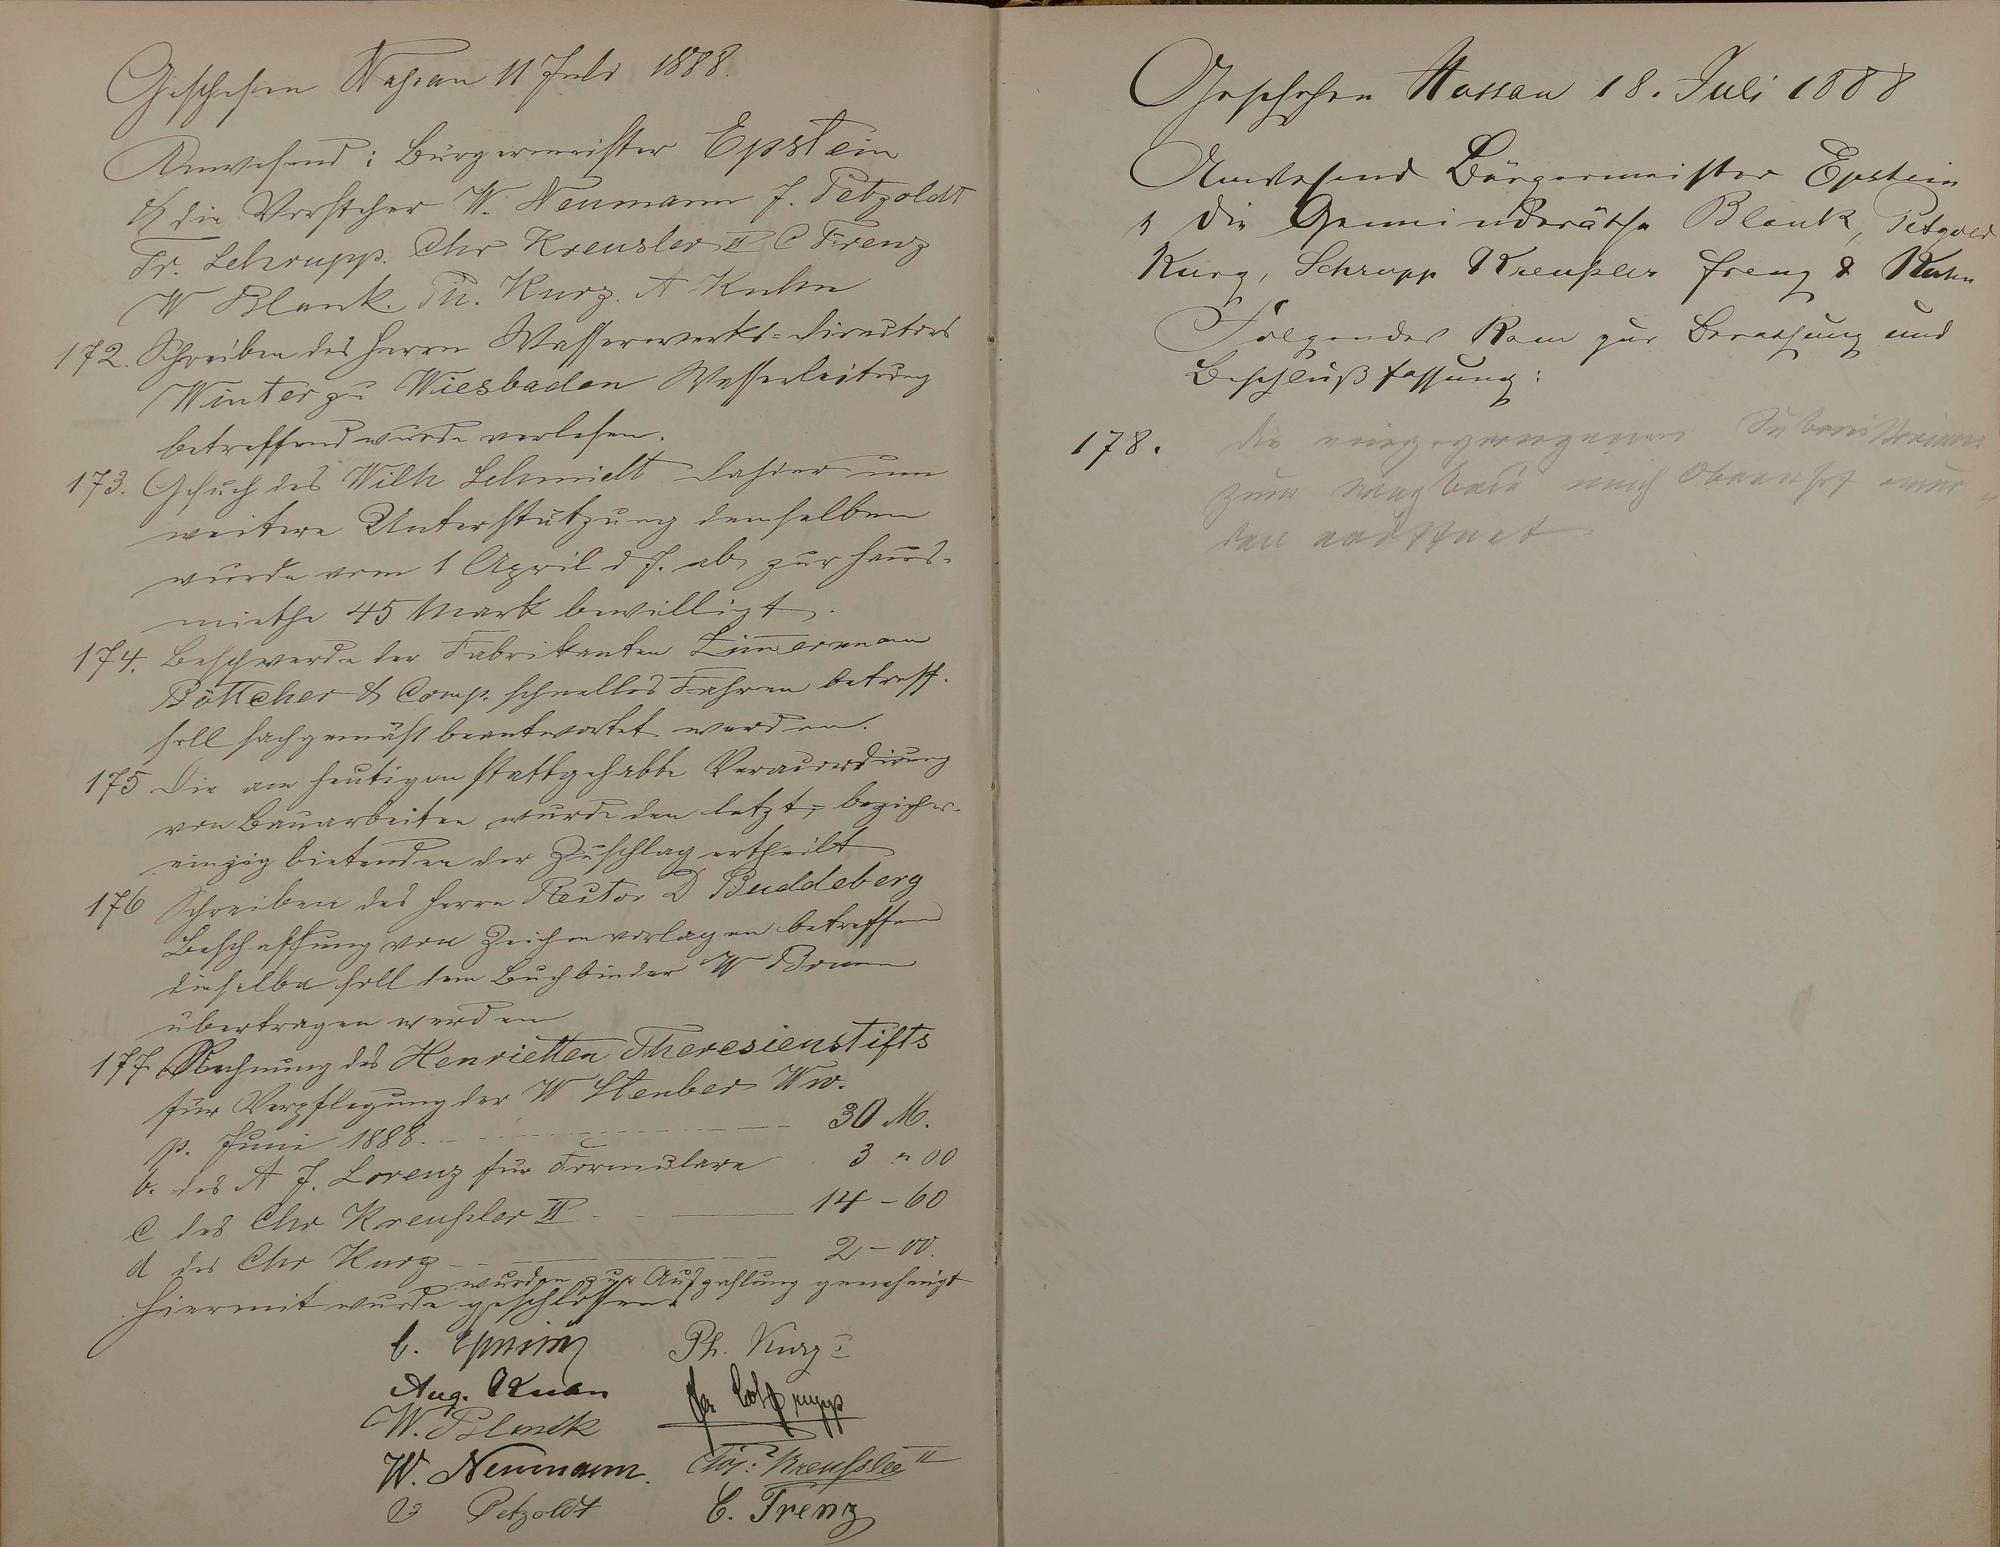 Geschehen Nassau 11 Juli 1888.
Anwesend: Bürgermeister Epstein
& die Vorsteher W. Neumann J. Petzoldt
Fr. Schrupp. Chr Kreusler II C Trenz
W Blank. Ph. Kurz. A Kuhn
172. Schreiben des Herrn Wasserwerks-Directors
Winter zu Wiesbaden Wasserleitung
betreffend wurde verlesen.
173. Gesuch des Wilh Schmidt dahier um
weitere Unterstützung demselben
wurde vom 1 April d J. ab zur Haus-
miethe 45 Mark bewilligt.
174. Beschwerde der Fabrikanten Zimermann
Pöttcher & Comp. schnelles Fahren betreff.
soll sachgemäß beantwortet werden.
175 Die am heutigen stattgehabte Veraccordirung
von Bauarbeiten wurde den letzt-, beziehw.
einzig bietenden der Zuschlag ertheilt
176 Schreiben des Herrn Rector D Buddeberg
Beschaffung von Zeichenvorlagen betreffend
dieselbe soll dem Buchbinder W
übertragen werden
177. Rechnung des Henrietten Theresienstifts
für Verpflegung der W Steuber Ww.
p. Juni 1888. 30 M.
b. des A J. Lorenz für Formulare 3 " 00
c des Chr Kreußler II 14 - 60
d des Chr Kurz 2 - 00.
wurden zur Auszahlung genehmigt
Hiermit wurde geschlossen.
C. Epstein Ph. Kurz I
Aug. Kuhn Fr Schrupp
W. Blank
W. Neumann. Chr: Kreußler II
Petzoldt C. Trenz
Geschehen Nassau 18. Juli 1888
Anwesend Bürgermeister Epstein
& die Gemeinderäthe Blank, Petzold
Kurz, Schrupp Kreußler Trenz & Kuhn
Folgendes Kam zur Berathung und
Beschlußfassung:
178. die eingegangenen Submissionen
zum Wegbau nach Obernhof wur-
den eröffnet